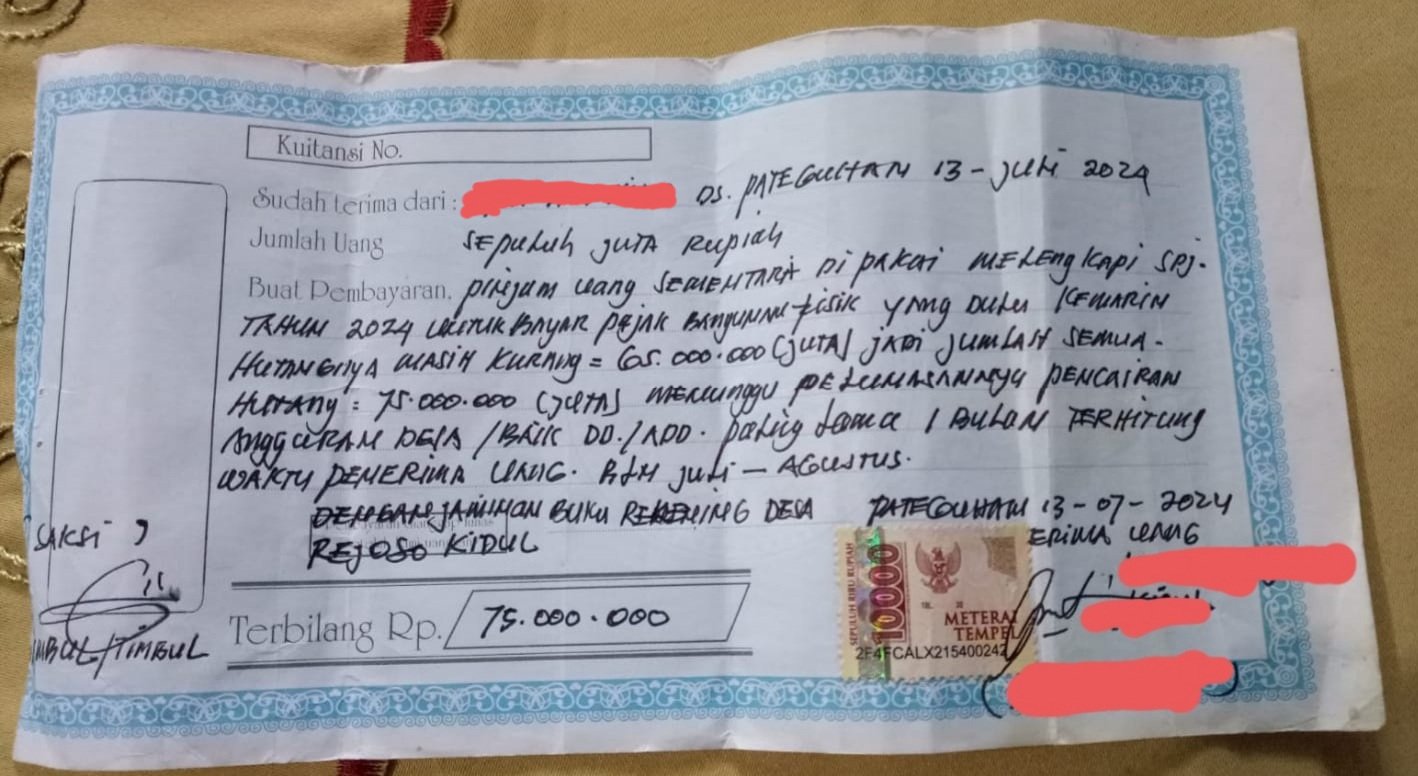 Kuitansi No.
Sudah terima dari : DS. PATEGUHAN 13 - JULI 2024
Jumlah Uang SEPULUH JUTA RUPIAH
Buat Pembayaran. PINJAM UANG SEMENTARA DI PAKAI MELENGKAPI SPJ.
TAHUN 2024 UNTUK BAYAR PAJAK BANGUNAN FISIK YANG DULU KEMARIN
HUTANGNYA MASIH KURANG = 65.000.000 (JUTA) JADI JUMLAH SEMUA.
HUTANG : 75.000.000 (JUTA) MENUNGGU PELUNASANNYA PENCAIRAN
ANGGARAN DESA / BAIK DD./ADD. PALING LAMA 1 BULAN TERHITUNG
WAKTU PENERIMA UANG. BLN JULI - AGUSTUS.
DENGAN JAMINAN BUKU REKENING DESA
REJOSO KIDUL
PATEGUHAN 13-07-2024
ERIMA UANG
SAKSI
TIMBUL
Terbilang Rp. 75.000.000
SEPULUH RIBU RUPIAH
10000
TGL. 20
METERAI
TEMPEL
2F4FCALX215400242